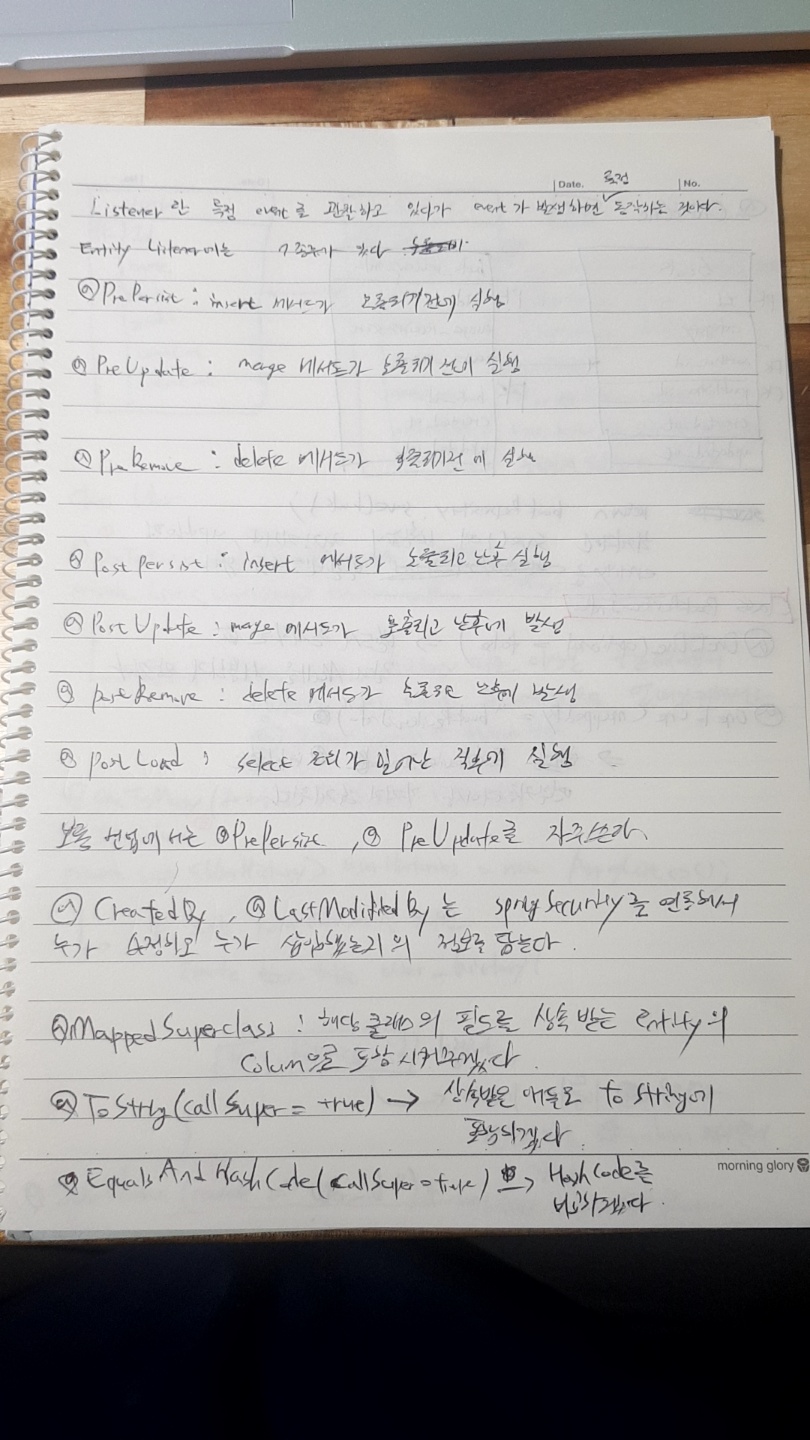 Date. 특정 No.
Listener란 특정 event를 관찰하고 있다가 event가 발생하면 동작하는 것이다.
Entity Listener에는 7종류가 있다
@PrePersist : insert 메서드가 호출되기전에 실행
@PreUpdate : merge 메서드가 호출되기 전에 실행
@PreRemove : delete 메서드가 호출되기전에 실행
@PostPersist : insert 메서드가 호출되고 난후 실행
@PostUpdate : merge 메서드가 호출되고 난후에 발생
@PostRemove : delete 메서드가 호출되고 난후에 발생
@PostLoad : select 조회가 일어난 직후에 실행
보통 현업에서는 @PrePersize, @PreUpdate를 자주쓴다.
@CreatedBy, @LastModifiedBy는 spring Security를 연동해서
누가 수정하고 누가 삽입했는지의 정보를 담는다.
@MappedSuperclass : 해당 클래스의 필드를 상속 받는 entity의
Colum으로 포함 시켜주겠다.
@ToString(callSuper = true) → 상속받은 애들도 to string에
포함하겠다
@EqualsAndHashCode(callSuper = true) → HashCode를
morning glory